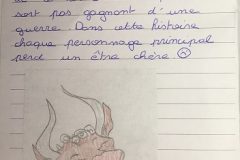 sort pas gagnant d'une
guerre. Dans cette histoire
chaque personnage principal
perd un être chère